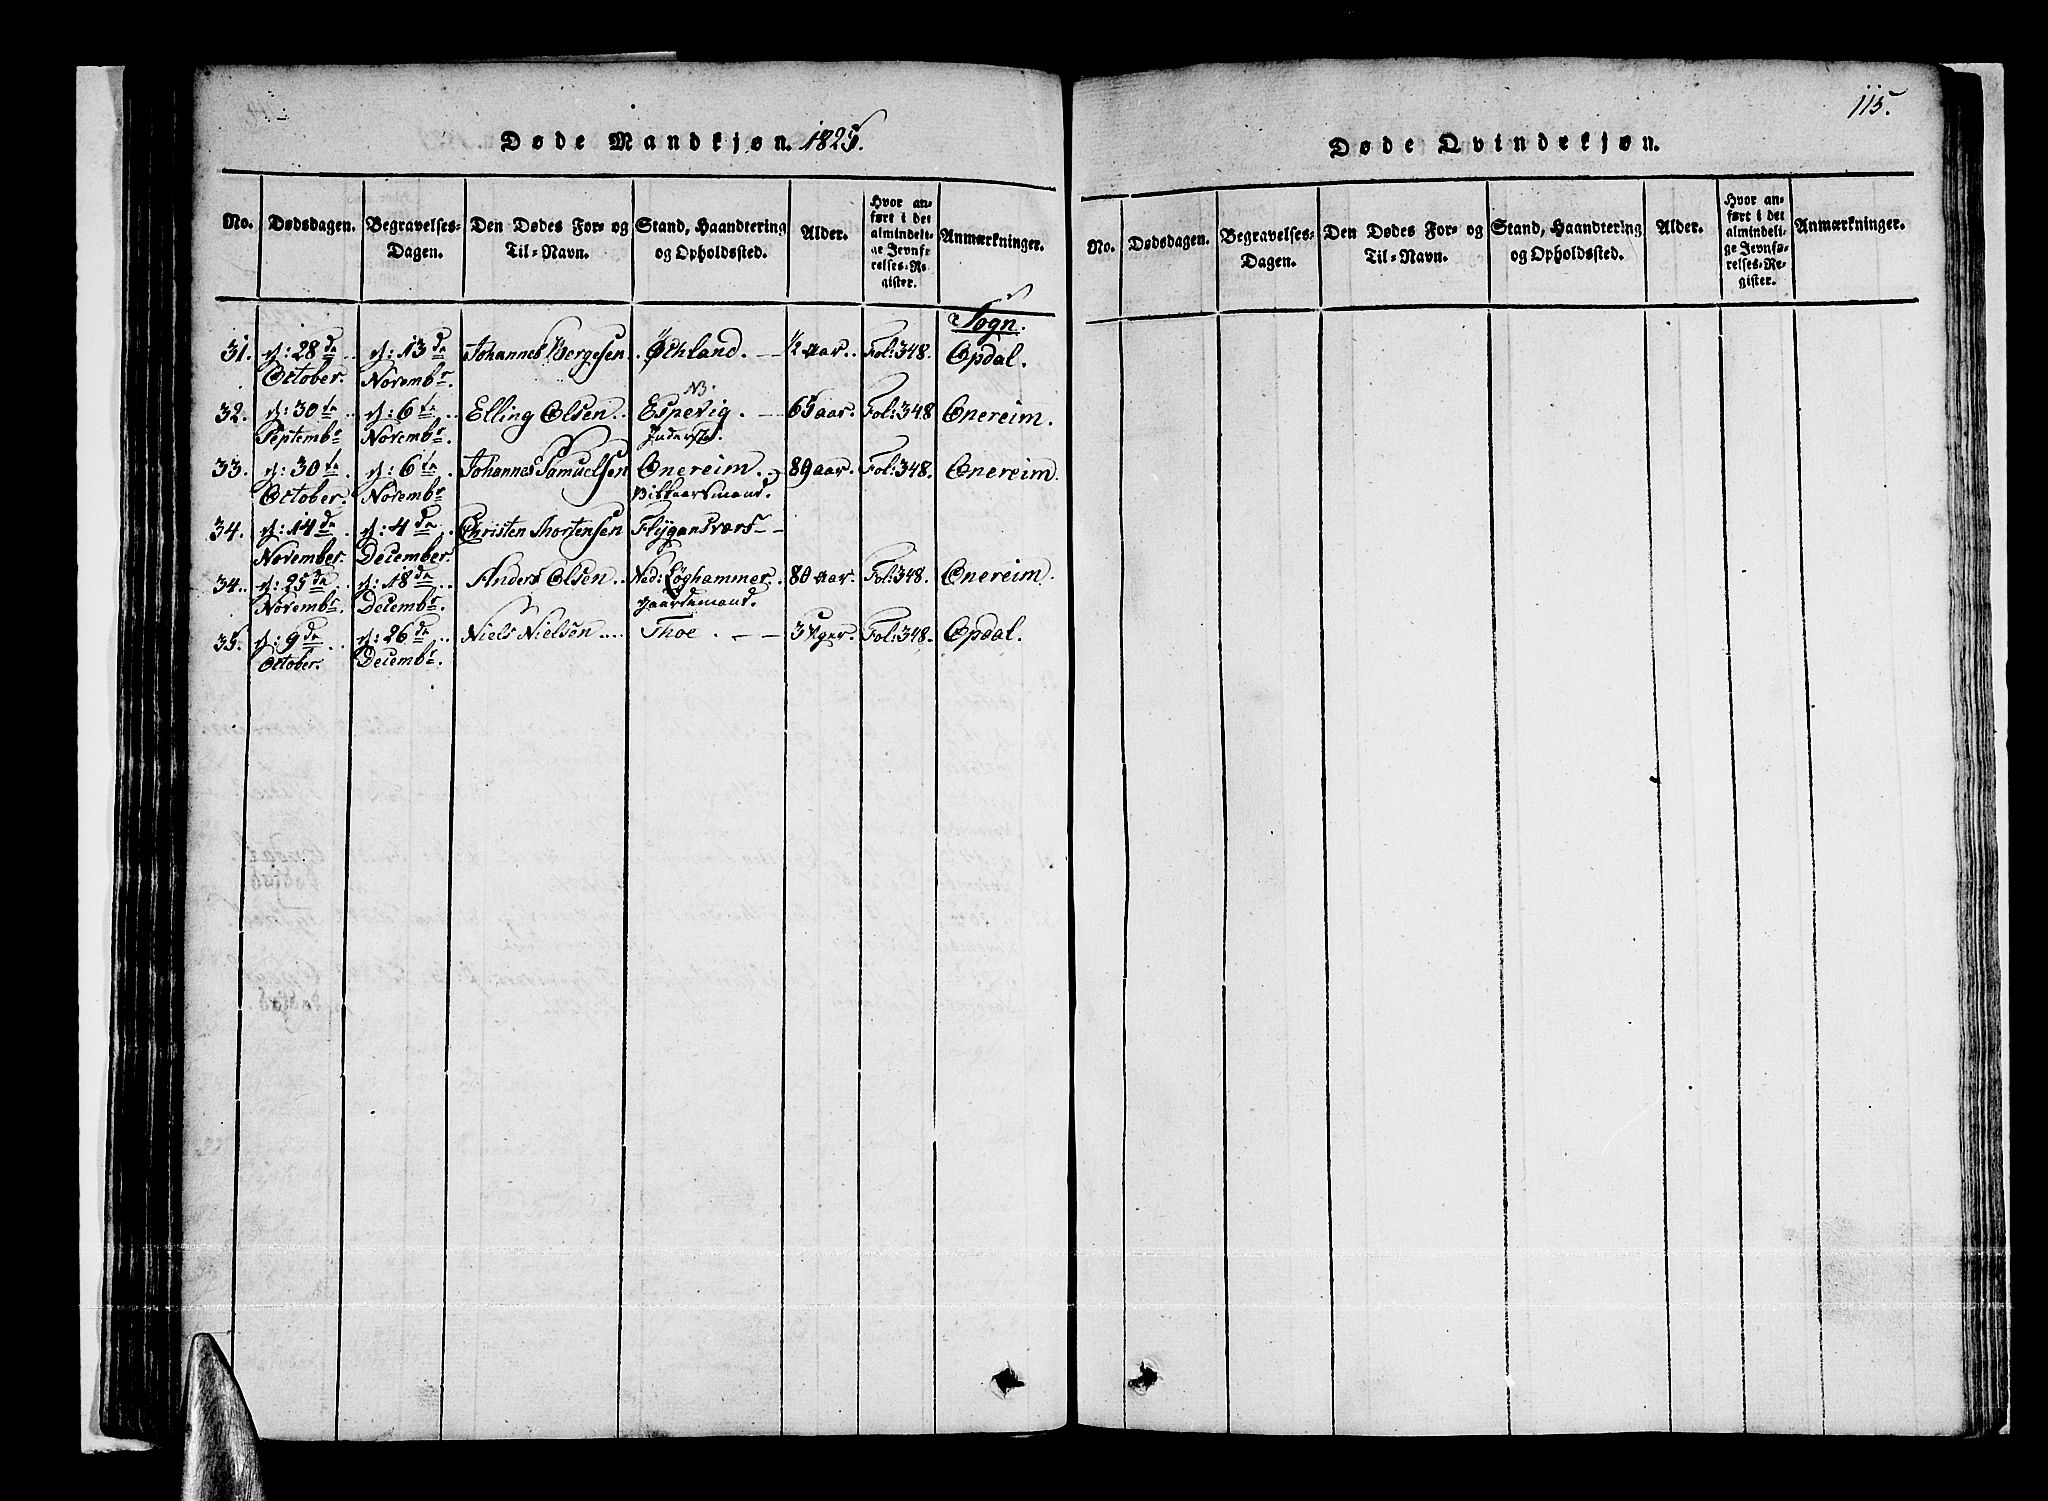 Døde Mandkjøn. 1825.
No. Dødsdagen. Begravelses-Dagen. Den Dødes For- og Til-Navn. Stand, Haandtering og Opholdssted. Alder. Hvor anført i det almindelige Jevnførelses-Register. Anmærkninger.
Sogn.
31. d: 28de October. d: 13de Novembr. Johannes Børgesen Øchland. ½ aar. Fol: 348. Opdal.
32. d: 30te Septembr d: 6te Novembr. Elling Olsen NB. Espevig. Inderste. 65 aar. Fol: 348 Onereim.
33. d: 30te October. d: 6te Novembr Johannes Samuelsen Onereim. Vilkaarsmand. 89 aar. Fol: 348. Onereim.
34. d: 14de November. d: 4de December. Christen Mortensen Flygansvær
34. d: 25de Novembr. d: 18de Decembr. Anders Olsen Ned: Løghammer. gaardmand. 80 aar. Fol: 348. Onereim.
35. d: 9de October. d: 26de Decembr. Niels Nielsen Thoe. 3 Uger. Fol: 348. Opdal.
115.
Døde Qvindekjøn.
No. Dødsdagen. Begravelses-Dagen. Den Dødes For- og Til-Navn. Stand, Haandtering og Opholdssted. Alder. Hvor anført i det almindelige Jevnførelses-Register. Anmærkninger.